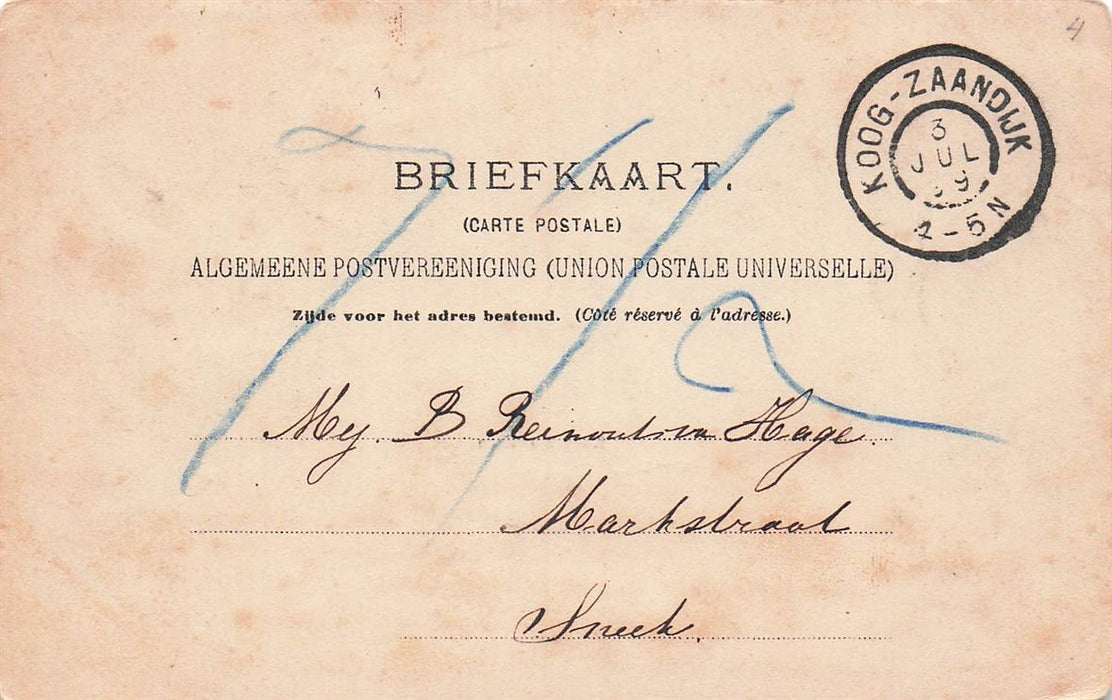 4
KOOG-ZAANDIJK
3
JUL
99
2-5N
BRIEFKAART.
(CARTE POSTALE)
ALGEMEENE POSTVEREENIGING (UNION POSTALE UNIVERSELLE)
Zijde voor het adres bestemd. (Côté réservé à l'adresse.)
Mej. B Reinoutsvan Hage.
Markstraat
Sneek.